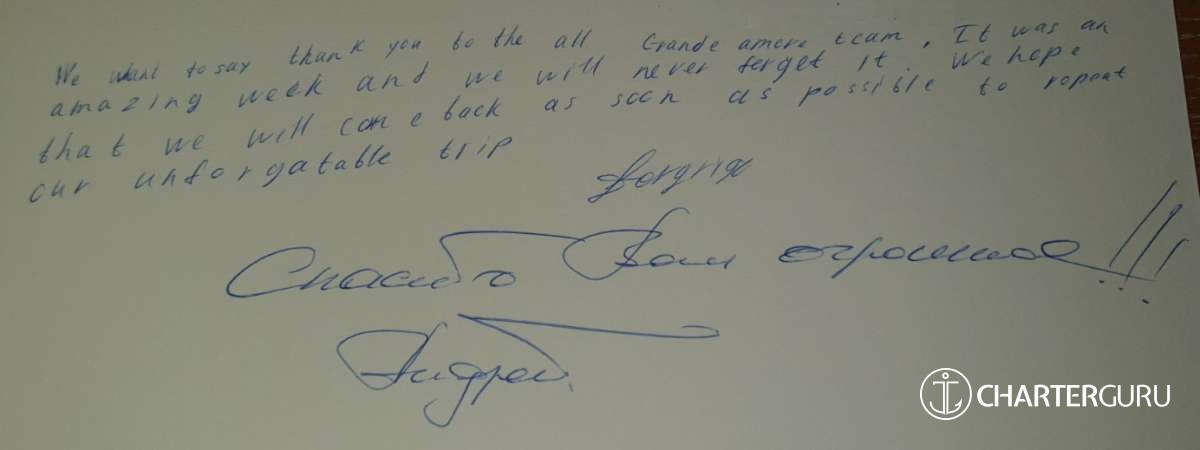 We want to say thank you to the all Grande amore team. It was an
amazing week and we will never forget it. We hope
that we will come back as soon as possible to repeat
our unforgatable trip
Спасибо Вам огромное!!!
Андрей.
CHARTERGURU